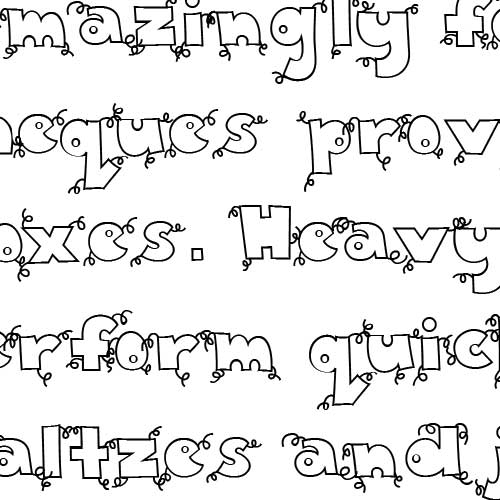 mazingly fo
acques prov
oxes. Heavy
erform quick
altzes and j